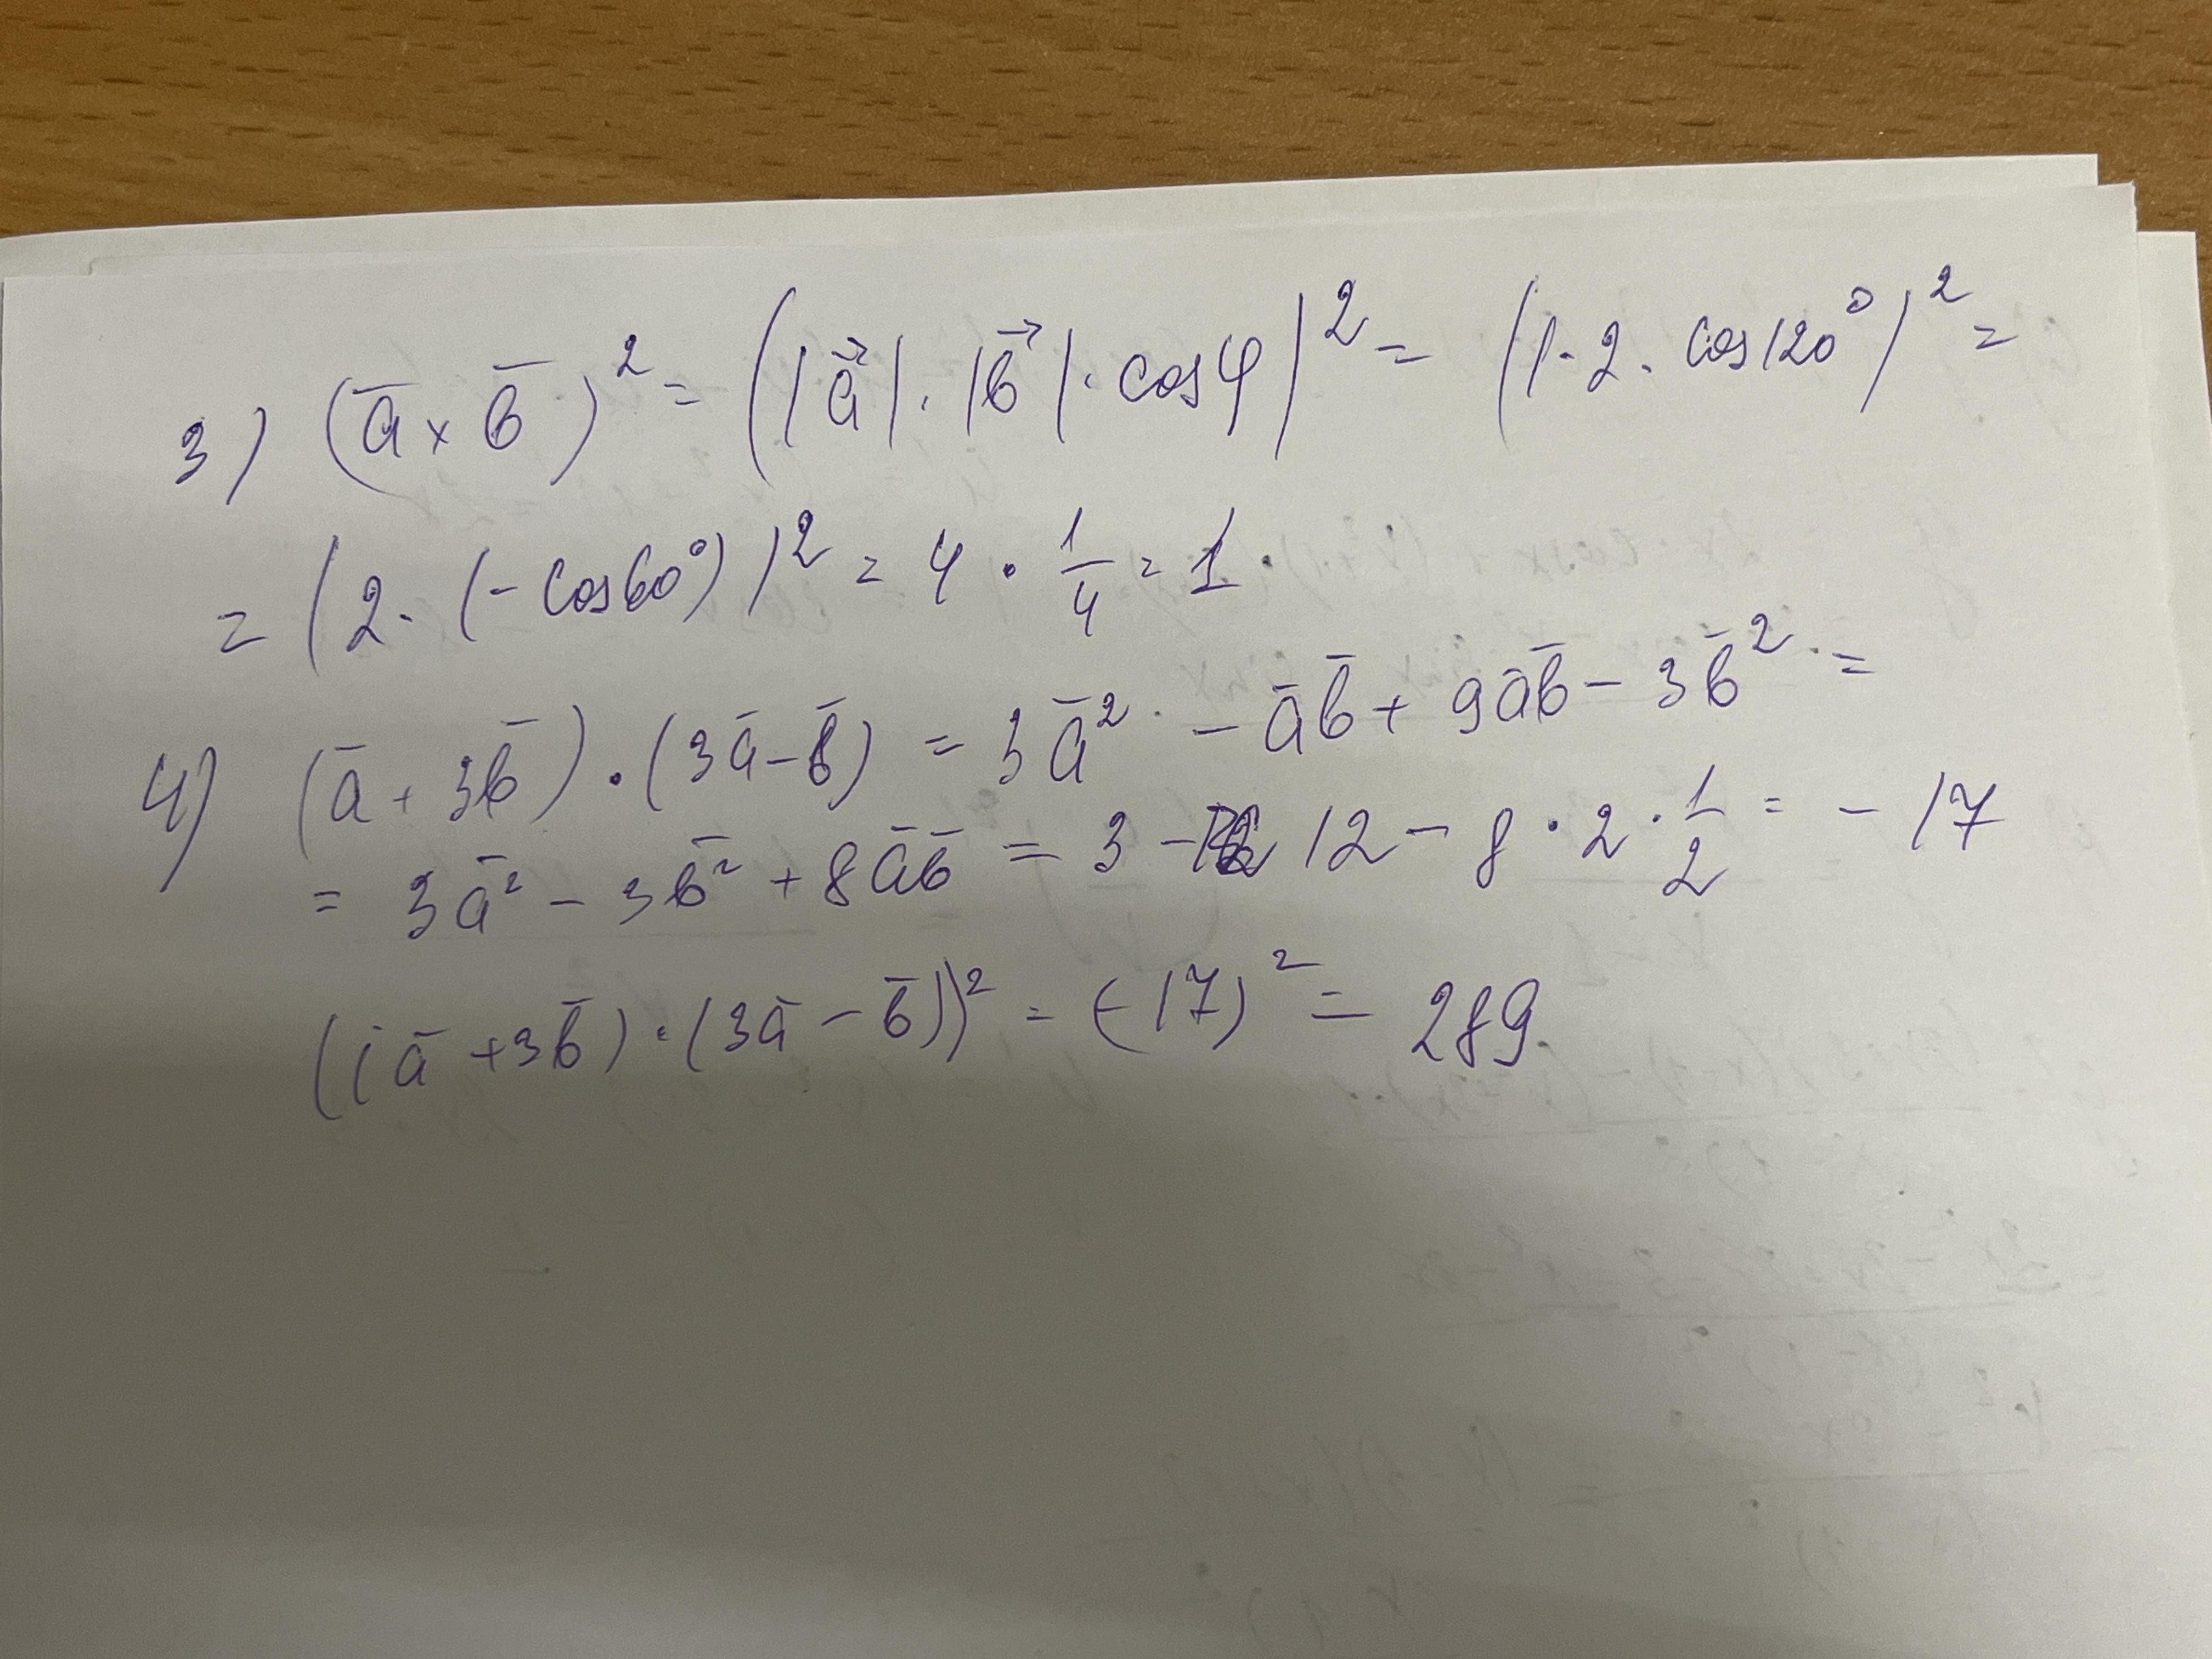 3) (a̅ × b̅)² = (|a⃗| · |b⃗| · cosφ)² = (1 · 2 · cos120°)² =
= (2 · (- cos60°))² = 4 · 1/4 = 1.
4) (a̅ + 3b̅) · (3a̅ - b̅) = 3a̅² - a̅b̅ + 9a̅b̅ - 3b̅² =
= 3a̅² - 3b̅² + 8a̅b̅ = 3 - 12 - 8 · 2 · 1/2 = - 17
((a̅ + 3b̅) · (3a̅ - b̅))² = (-17)² = 289.